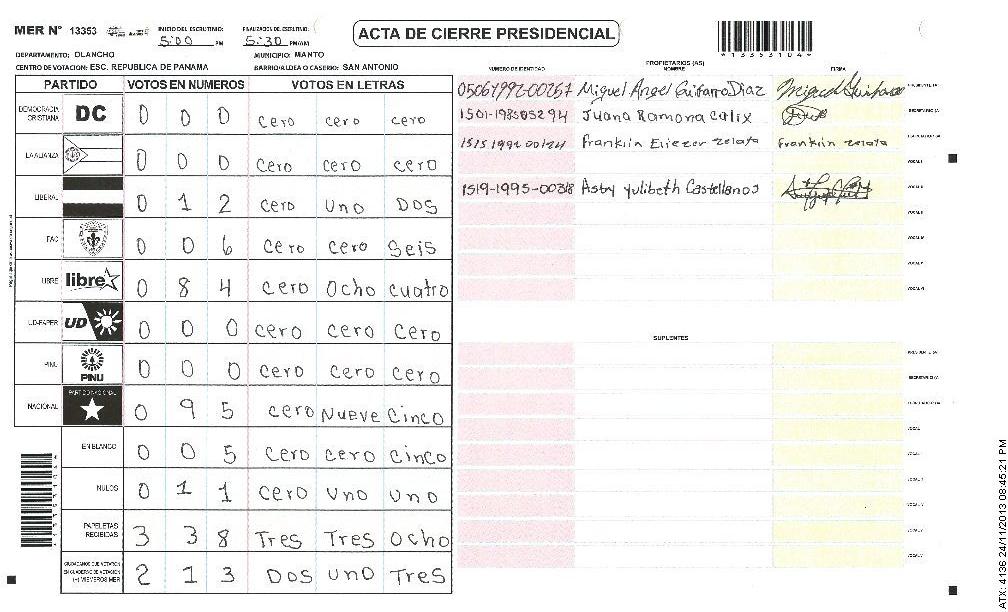 MER N° 13353
INICIO DEL ESCRUTINIO:
5:00 PM
FINALIZACION DEL ESCRUTINIO:
5:30 PM/AM
ACTA DE CIERRE PRESIDENCIAL
*1335310 4*
DEPARTAMENTO: OLANCHO MUNICIPIO: MANTO
CENTRO DE VOTACION: ESC. REPUBLICA DE PANAMA BARRIO/ALDEA O CASERIO: SAN ANTONIO
PARTIDO VOTOS EN NUMEROS VOTOS EN LETRAS
DEMOCRACIA CRISTIANA DC 0 0 0 cero cero cero
LA ALIANZA 0 0 0 cero cero cero
LIBERAL 0 1 2 cero uno Dos
FAC 0 0 6 cero cero seis
LIBRE libre 0 8 4 cero Ocho cuatro
UD-FAPER UD 0 0 0 cero cero cero
PINU PINU 0 0 0 cero cero cero
NACIONAL PARTIDO NACIONAL 0 9 5 cero Nueve Cinco
EN BLANCO 0 0 5 cero cero cinco
NULOS 0 1 1 cero uno uno
PAPELETAS RECIBIDAS 3 3 8 Tres Tres Ocho
CIUDADANOS QUE VOTARON EN CUADERNO DE VOTACION (+) MIEMBROS MER 2 1 3 Dos uno Tres
PROPIETARIOS (AS)
NUMERO DE IDENTIDAD NOMBRE FIRMA
Miguel Angel Guifarro Diaz PRESIDENTE (A)
Juana Ramona Calix SECRETARIO (A)
Franklin Eliezer zelata Franklin zelata
VOCAL I
1519-1995-00318 Asby yulibeth Castellanos VOCAL II
VOCAL III
VOCAL IV
VOCAL V
VOCAL VI
SUPLENTES
PRESIDENTE (A)
SECRETARIO (A)
ATX: 4136 24/11/2013 08:45:21 PM